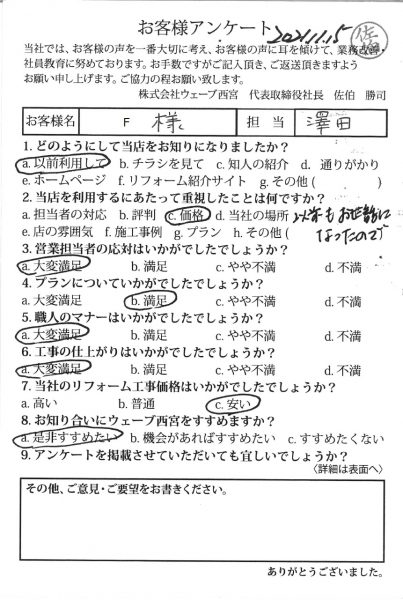 お客様アンケート 2021.11.15 佐伯
当社では、お客様の声を一番大切に考え、お客様の声に耳を傾けて、業務改善・
社員教育に努めております。お手数ですがご記入頂き、ご返送頂きますよう
お願い申し上げます。ご協力の程お願い致します。
株式会社ウェーブ西宮 代表取締役社長 佐伯 勝司
お客様名 F 様 担当 澤田
1. どのようにして当店をお知りになりましたか?
a. 以前利用して b. チラシを見て c. 知人の紹介 d. 通りがかり
e. ホームページ f. リフォーム紹介サイト g. その他 ( )
2. 当店を利用するにあたって重視したことは何ですか?
a. 担当者の対応 b. 評判 c. 価格 d. 当社の場所 以前もお世話に
e. 店の雰囲気 f. 施工事例 g. プラン h. その他 ( なったので
3. 営業担当者の応対はいかがでしたでしょうか?
a. 大変満足 b. 満足 c. やや不満 d. 不満
4. プランについていかがでしたでしょうか?
a. 大変満足 b. 満足 c. やや不満 d. 不満
5. 職人のマナーはいかがでしたでしょうか?
a. 大変満足 b. 満足 c. やや不満 d. 不満
6. 工事の仕上がりはいかがでしたでしょうか?
a. 大変満足 b. 満足 c. やや不満 d. 不満
7. 当社のリフォーム工事価格はいかがでしたでしょうか?
a. 高い b. 普通 c. 安い
8. お知り合いにウェーブ西宮をすすめますか?
a. 是非すすめたい b. 機会があればすすめたい c. すすめたくない
9. アンケートを掲載させていただいても宜しいでしょうか?
〈詳細は表面へ〉
その他、ご意見・ご要望をお書きください。
ありがとうございました。